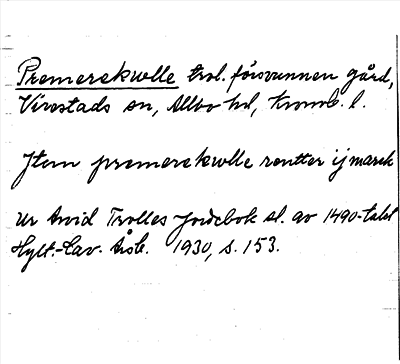 Premerskulle trol. försvunnen gård,
Virestads sn, Allbo hd, Kronob. l.
Jtem premerskulle rentter ij march
Ur Arvid Trolles Jordebok sl. av 1490-talet
Hylt.-Cav. Årsb. 1930, s. 153.